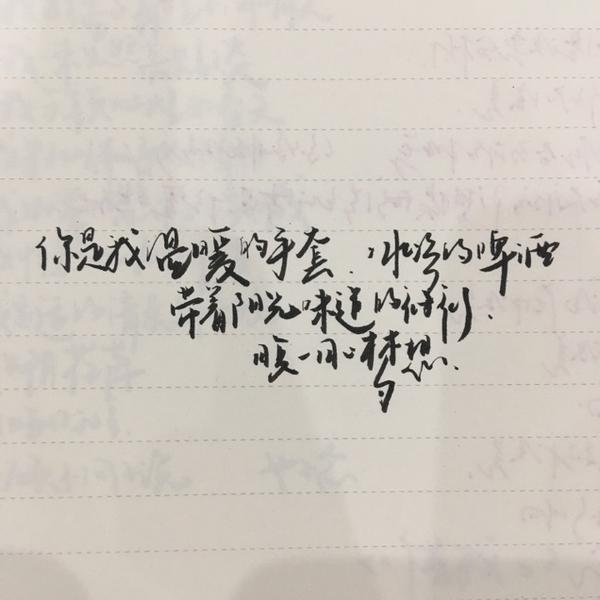 你是我温暖的手套.冰冷的啤酒
带着阳光味道的衬衫.
日复一日的梦想.